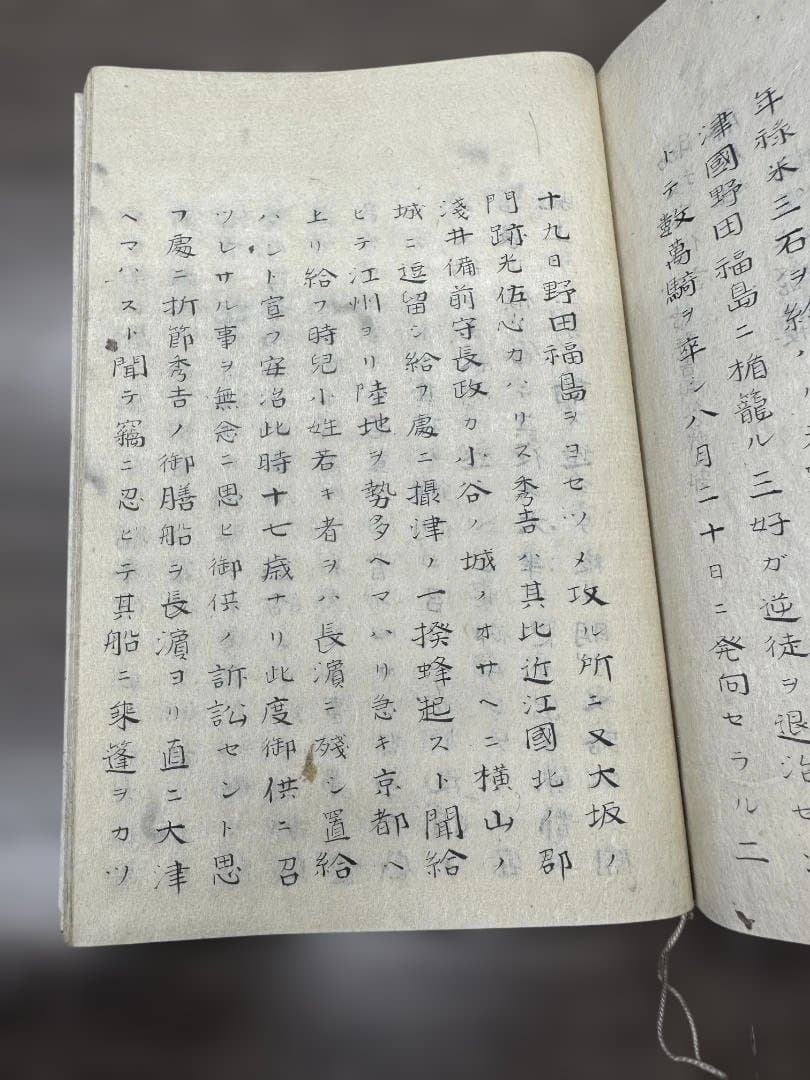 年祿米三石ヲ給
津國野田福島ニ楯籠ル三好ガ逆徒ヲ退治セ
トテ数萬騎ヲ率シ八月二十日ニ発向セラル二
十九日野田福島ヲヨセツメ攻ル所ニ又大坂ノ
門跡光佐心カハリス秀吉ハ其比近江國北ノ郡
淺井備前守長政カ小谷ノ城ノオサヘニ横山ノ
城ニ逗留シ給フ處ニ攝津ノ一揆蜂起スト聞給
ヒテ江州ヨリ陸地ヲ勢多ヘマハリ急キ京都ヘ
上リ給フ時兒小姓若キ者ヲハ長濵ニ殘シ置給
ハント宣フ安治此時十七歳ナリ此度御供ニ召
ツレサル事ヲ無念ニ思ヒ御供ノ訴訟セント思
フ處ニ折節秀吉ノ御膳船ヲ長濵ヨリ直ニ大津
ヘマハスト聞テ竊ニ忍ビテ其船ニ乗篷ヲカツ